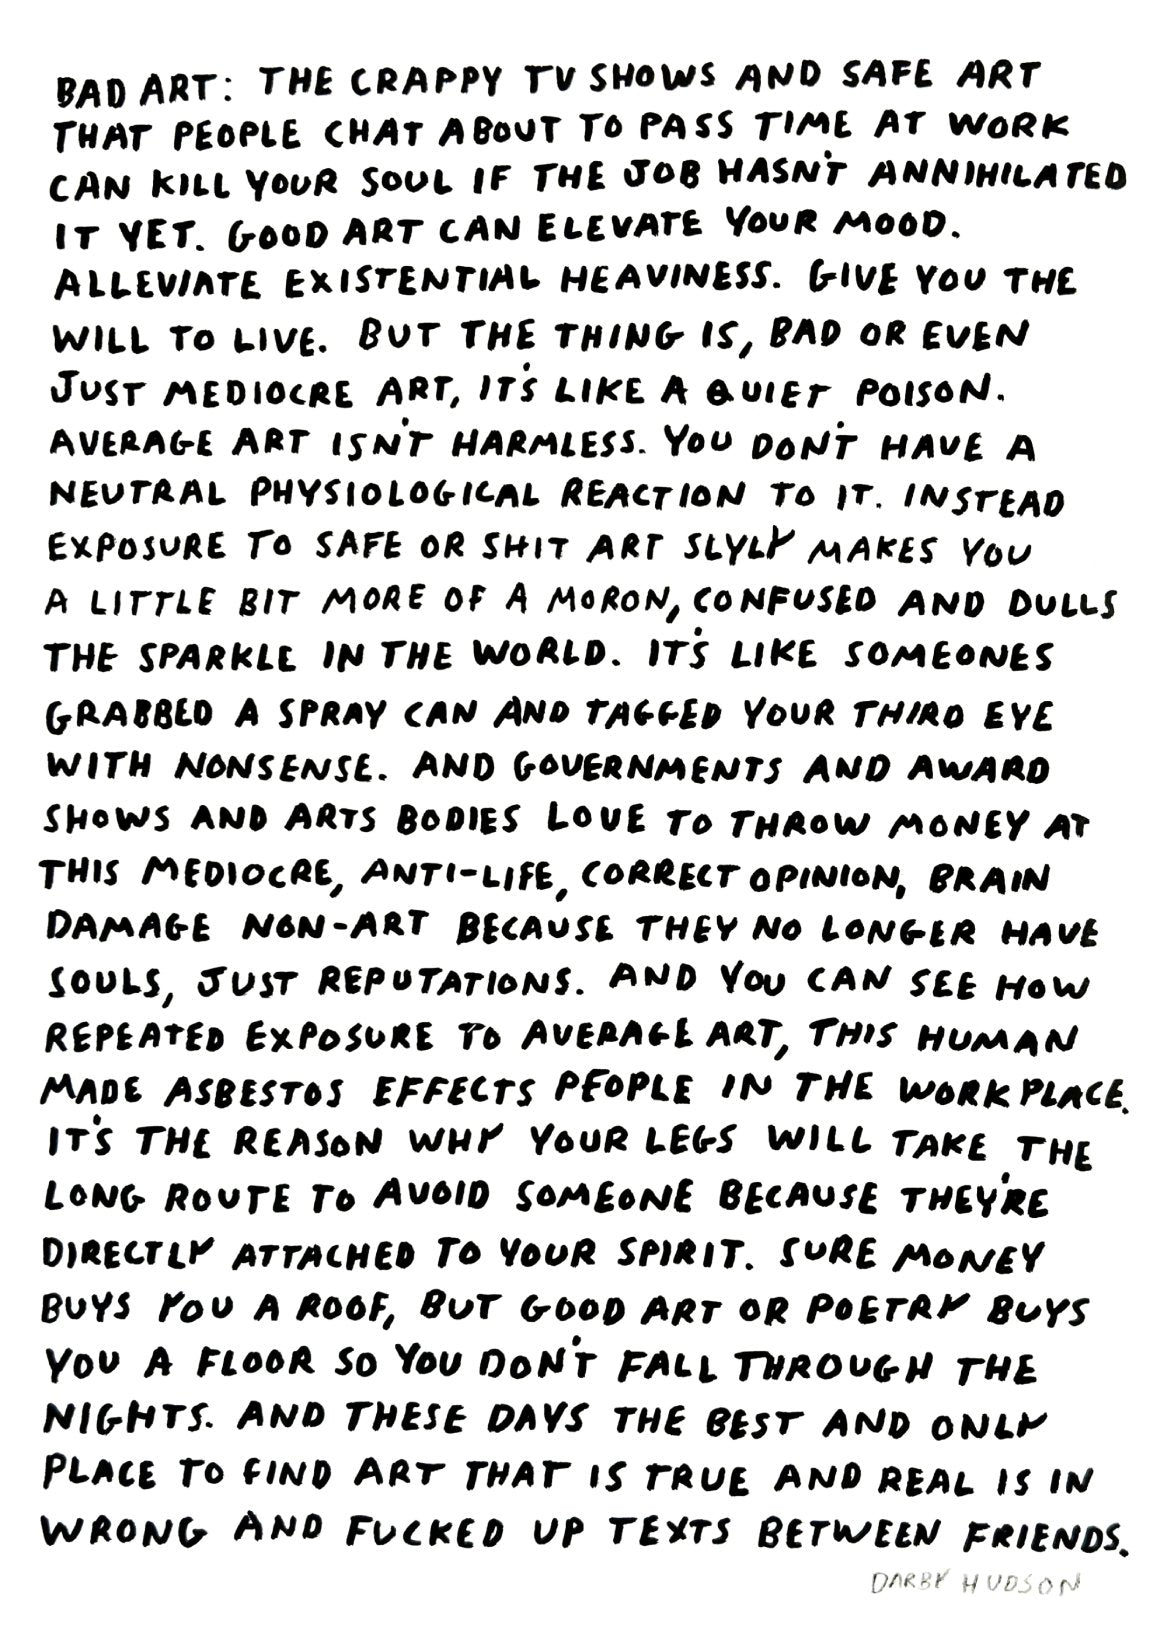 BAD ART: THE CRAPPY TV SHOWS AND SAFE ART
THAT PEOPLE CHAT ABOUT TO PASS TIME AT WORK
CAN KILL YOUR SOUL IF THE JOB HASN'T ANNIHILATED
IT YET. GOOD ART CAN ELEVATE YOUR MOOD.
ALLEVIATE EXISTENTIAL HEAVINESS. GIVE YOU THE
WILL TO LIVE. BUT THE THING IS, BAD OR EVEN
JUST MEDIOCRE ART, IT'S LIKE A QUIET POISON.
AVERAGE ART ISN'T HARMLESS. YOU DON'T HAVE A
NEUTRAL PHYSIOLOGICAL REACTION TO IT. INSTEAD
EXPOSURE TO SAFE OR SHIT ART SLYLY MAKES YOU
A LITTLE BIT MORE OF A MORON, CONFUSED AND DULLS
THE SPARKLE IN THE WORLD. IT'S LIKE SOMEONES
GRABBED A SPRAY CAN AND TAGGED YOUR THIRD EYE
WITH NONSENSE. AND GOVERNMENTS AND AWARD
SHOWS AND ARTS BODIES LOVE TO THROW MONEY AT
THIS MEDIOCRE, ANTI-LIFE, CORRECT OPINION, BRAIN
DAMAGE NON-ART BECAUSE THEY NO LONGER HAVE
SOULS, JUST REPUTATIONS. AND YOU CAN SEE HOW
REPEATED EXPOSURE TO AVERAGE ART, THIS HUMAN
MADE ASBESTOS EFFECTS PEOPLE IN THE WORKPLACE.
IT'S THE REASON WHY YOUR LEGS WILL TAKE THE
LONG ROUTE TO AVOID SOMEONE BECAUSE THEY'RE
DIRECTLY ATTACHED TO YOUR SPIRIT. SURE MONEY
BUYS YOU A ROOF, BUT GOOD ART OR POETRY BUYS
YOU A FLOOR SO YOU DON'T FALL THROUGH THE
NIGHTS. AND THESE DAYS THE BEST AND ONLY
PLACE TO FIND ART THAT IS TRUE AND REAL IS IN
WRONG AND FUCKED UP TEXTS BETWEEN FRIENDS.
DARBY HUDSON